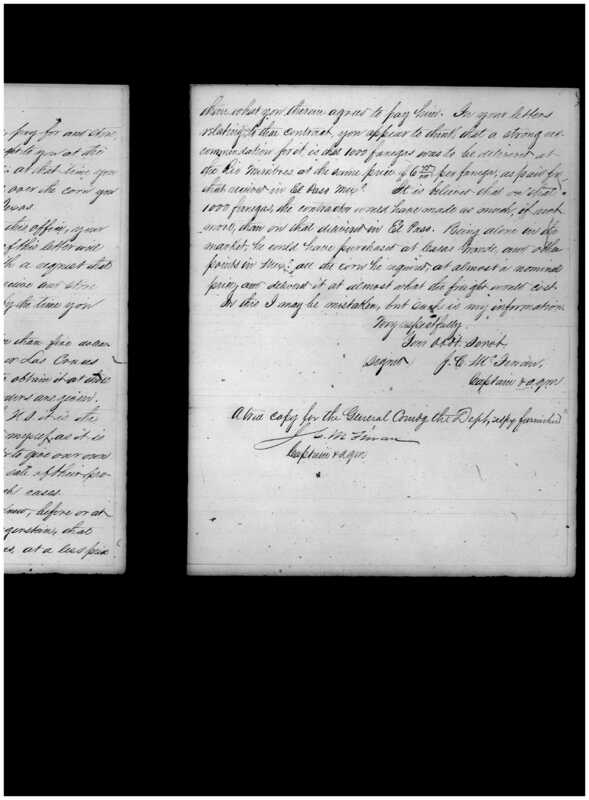 pay for and store,
pt to you at this
at that time you
over the corn you
Texas.
this office, your
of this letter will
th a request that
receive and store
by the time you
than five dollars
or Las Cruces
obtain it at
orders are given.
it is the
myself, as it is
to give our own
sale of their pro-
such cases.
know, before or at
that
at a less price
than what you therein agree to pay him. In your letters
relating to this contract, you appear to think, that a strong re-
commendation for it, is that 1000 fanegas was to be delivered at
the Dis Ministros at the same price $6 per fanega, as paid for
that received in El Paso Mexo. It is believed that on that
1000 fanegas, the contractor would have made as much, if not
more, than on that delivered in El Paso. Being alone in the
market, he could have purchased at Casas Grande, and other
points in Mexo. all the corn he required, at almost a nominal
price, and delivered it at almost what the freight would cost.
In this I may be mistaken, but such is my information
Very respectfully
Your Obdt. Servt
signed J. C. McFerran,
Captain & aqm
A true copy for the General Comdg the Dept, respy furnished
J. C. McFerran
Captain & aqm